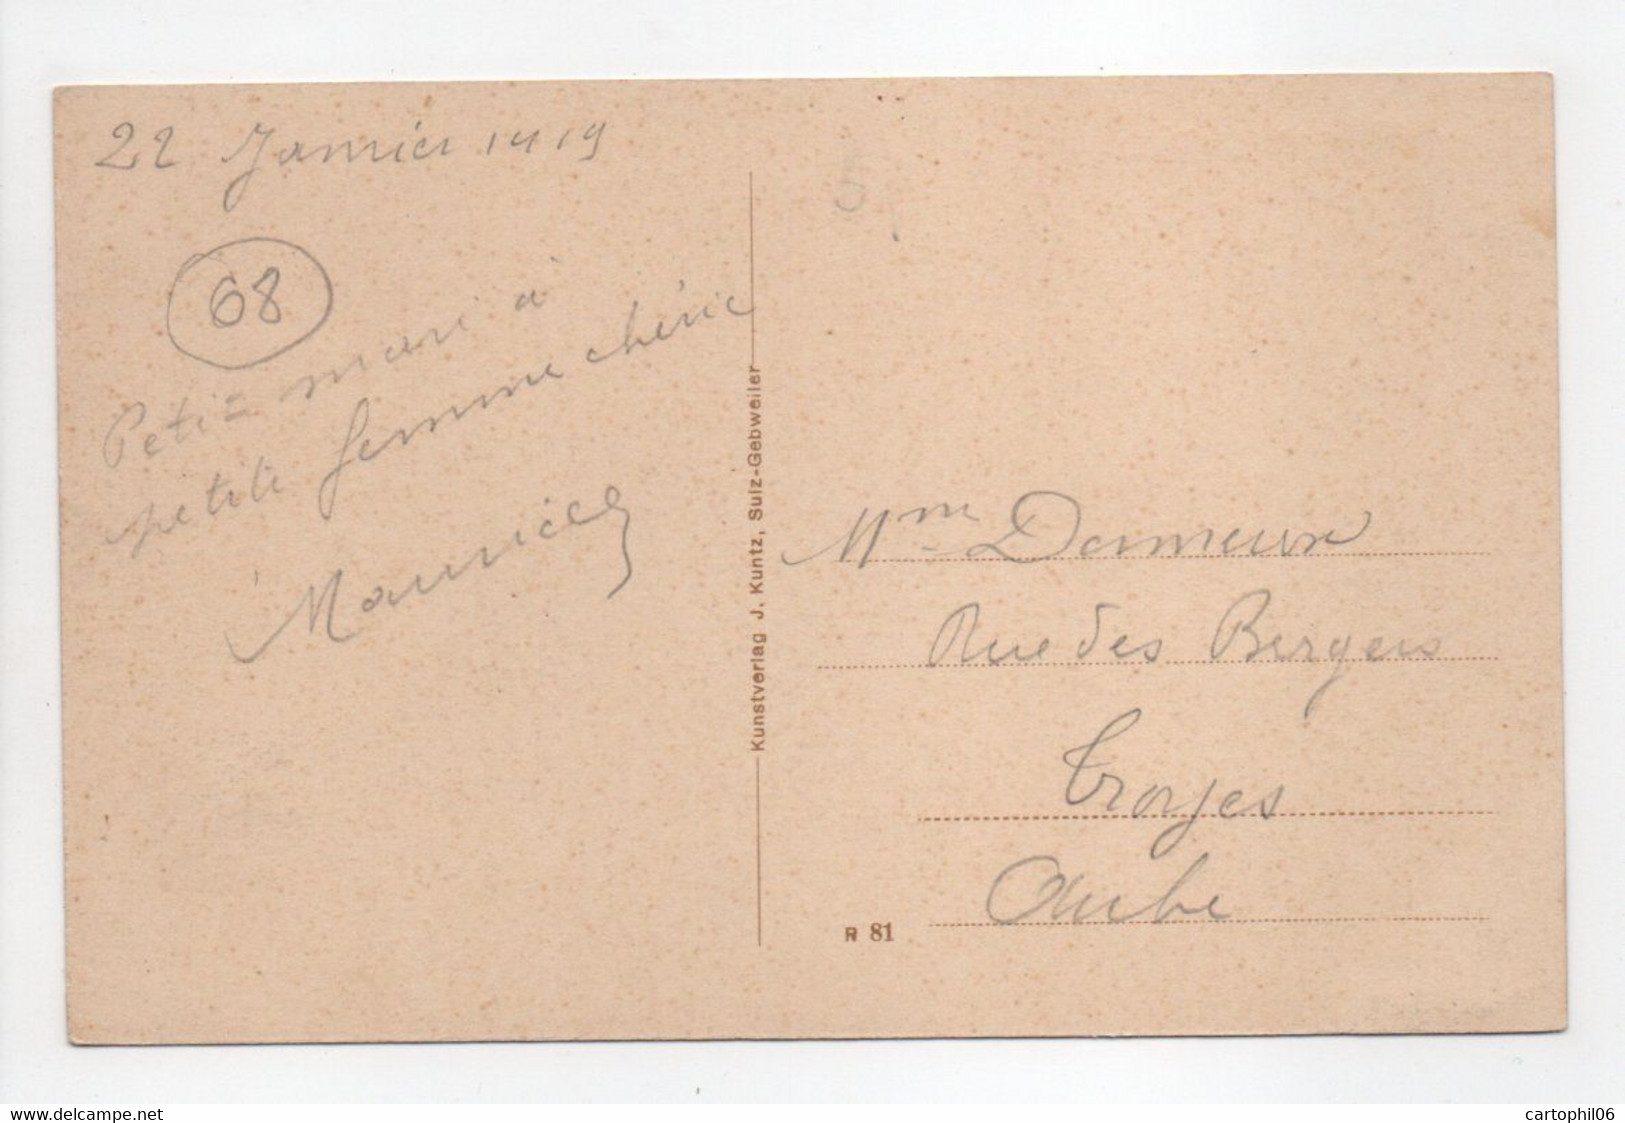 22 Janvier 1919
68
Petit mari à
petite femme chérie
Maurice
Kunstverlag J. Kuntz, Sulz-Gebweiler
Mme Dameron
Rue des Bergers
Troyes
Aube
R 81
www.delcampe.net
cartophil06